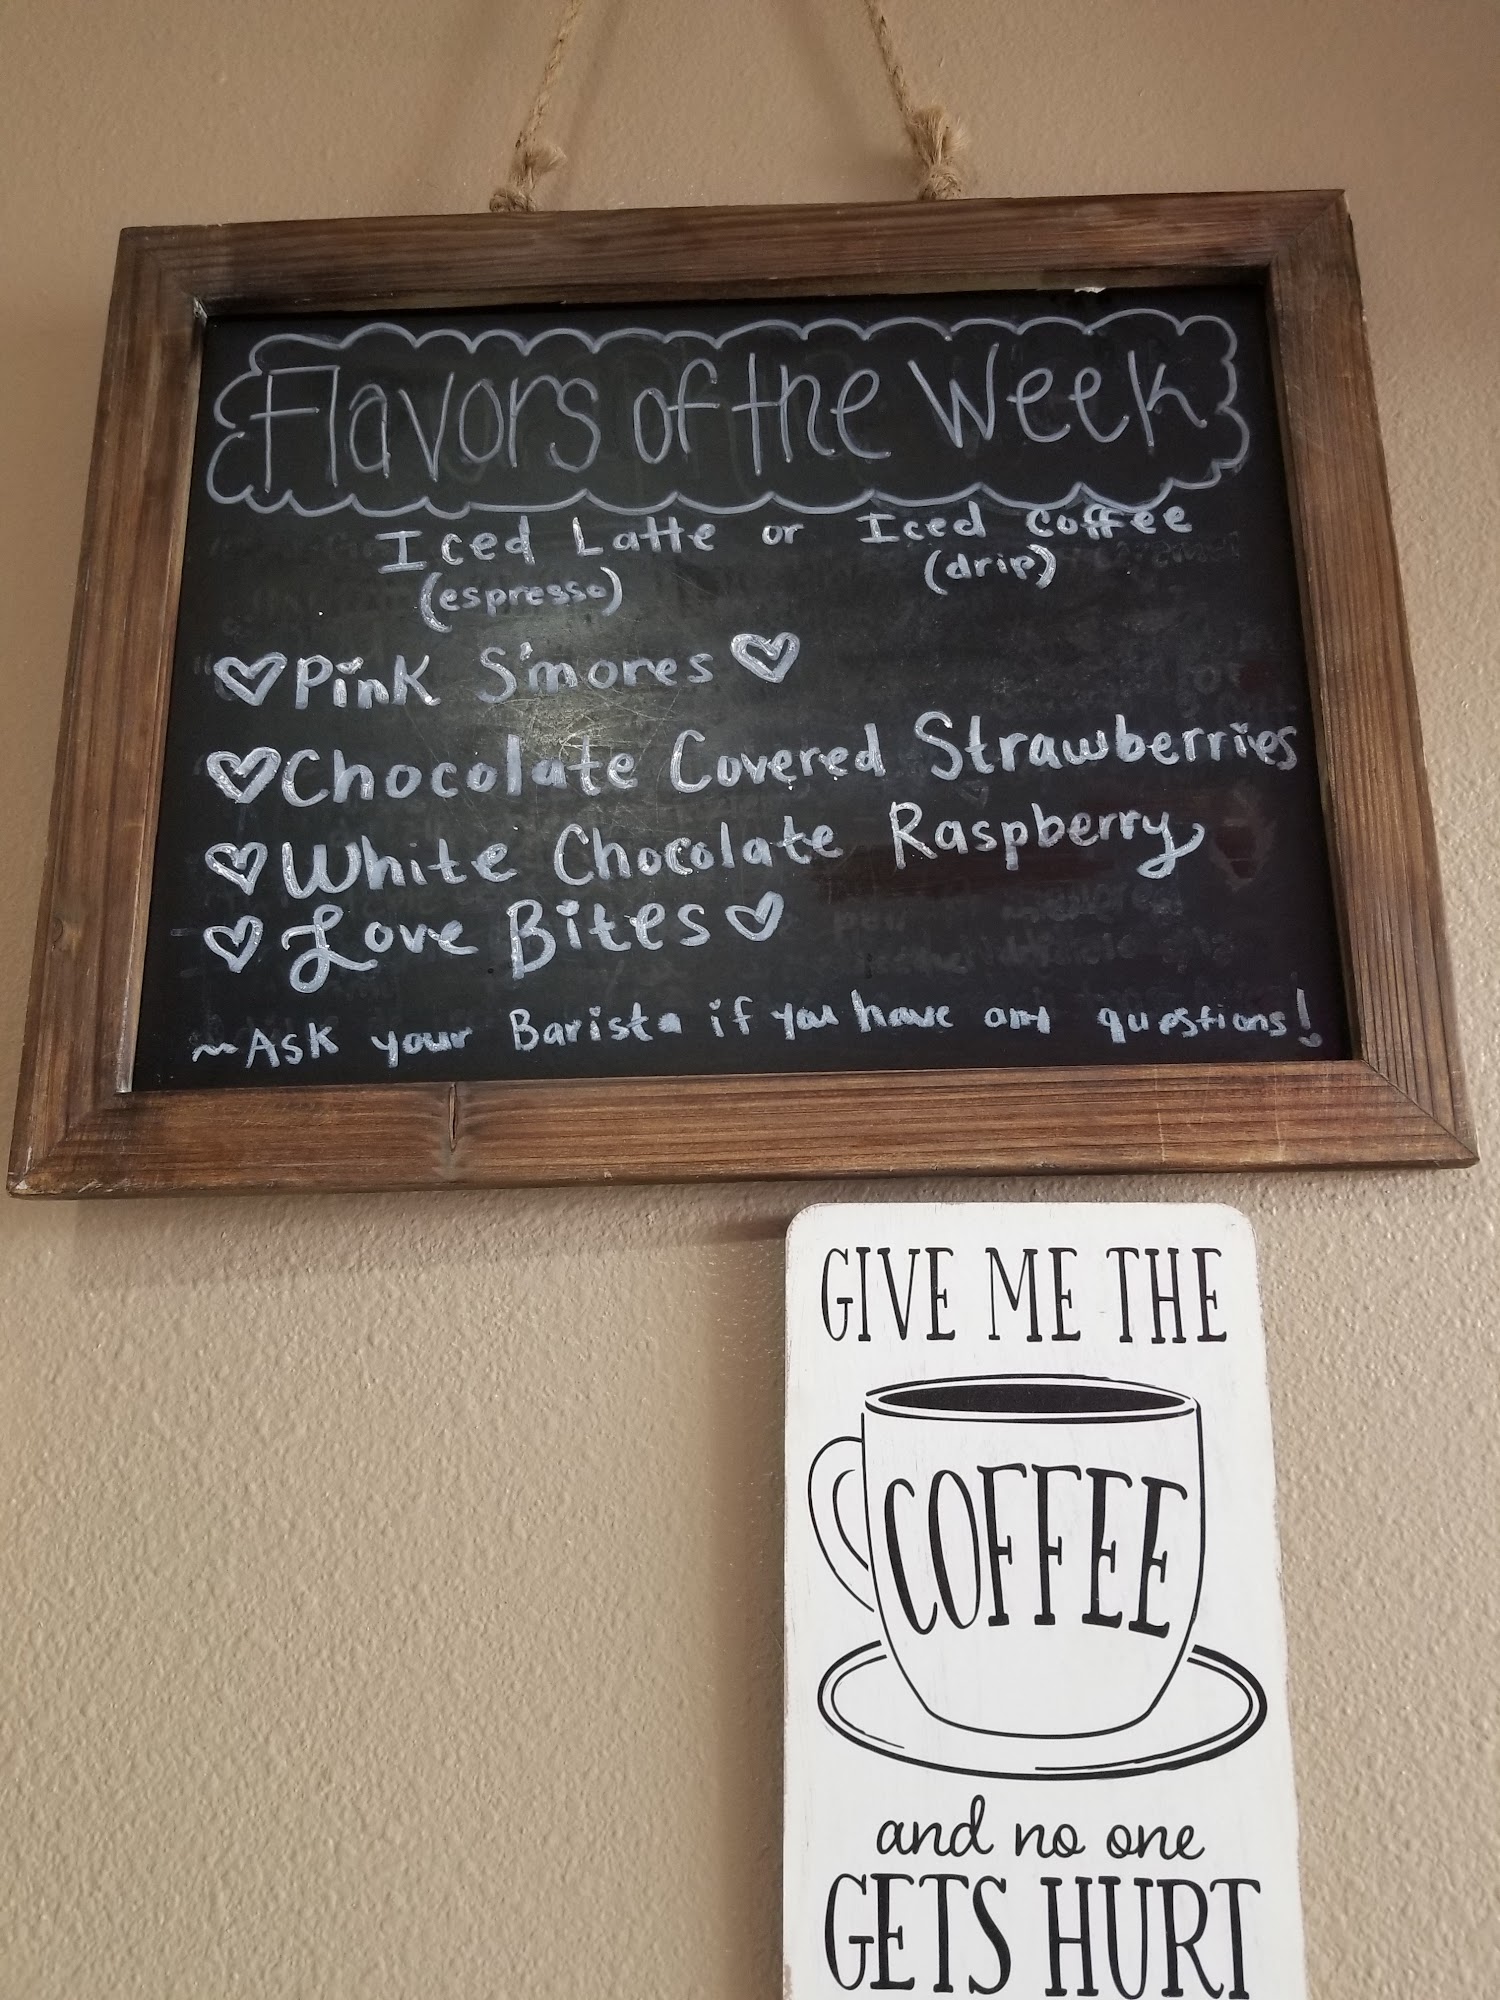 Flavors of the Week
Iced Latte or Iced Coffee
(espresso) (drip)
Pink S'mores
Chocolate Covered Strawberries
White Chocolate Raspberry
Love Bites
~Ask your Barista if you have any questions!
GIVE ME THE
COFFEE
and no one
GETS HURT